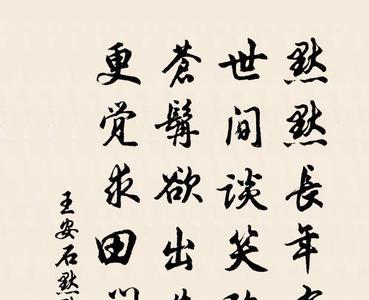 默默長年
世间談笑
蒼髯欲出
更觉求田
王安石默